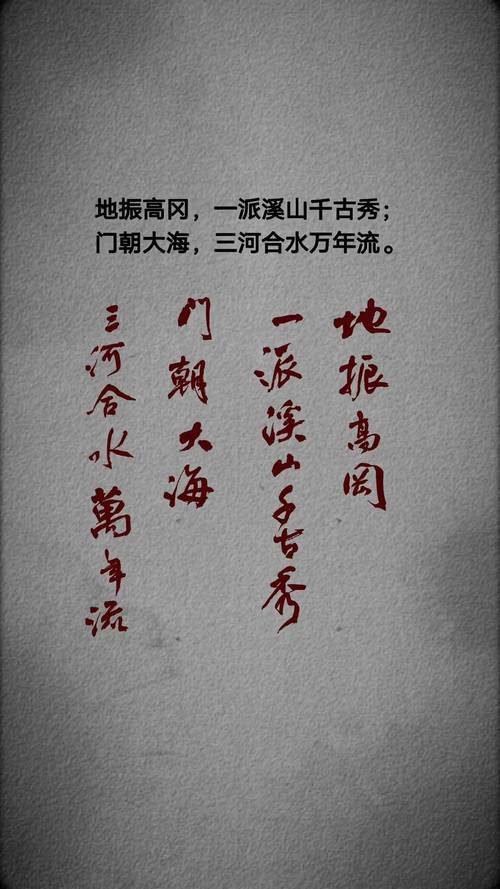 地振高冈，一派溪山千古秀；
门朝大海，三河合水万年流。
地振高岡
一派溪山千古秀
门朝大海
三河合水萬年流